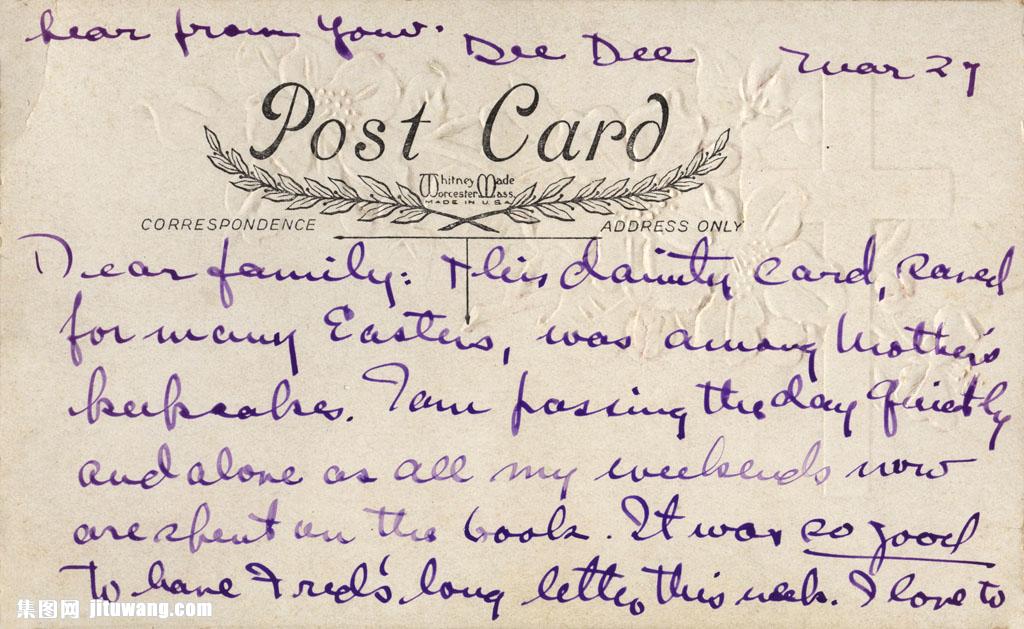 hear from you.
Dee Dee
Mar 27
Post Card
Whitney Made
Worcester Mass.
MADE IN U.S.A
CORRESPONDENCE
ADDRESS ONLY
Dear family: This dainty card, saved
for many Easters, was among Mother's
keepsakes. I am passing the day quietly
and alone as all my weekends now
are spent on the book. It was so good
to have Fred's long letter, this week. I love to
集图网 jituwang.com